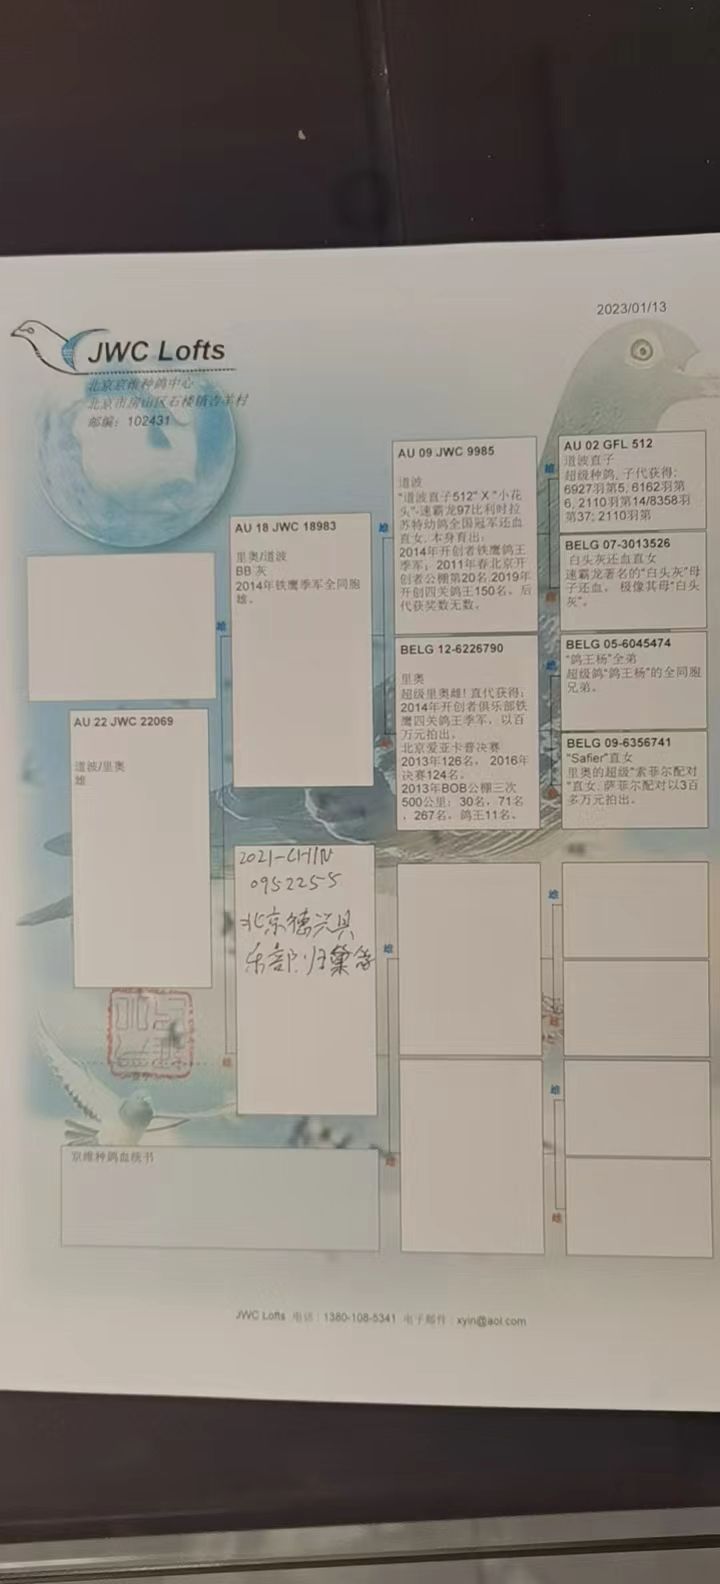 2023/01/13
JWC Lofts
北京京维种鸽中心
北京市房山区石楼镇吉羊村
邮编：102431
AU 22 JWC 22069
道波/里奥
雄
雄
雌
AU 18 JWC 18983
里奥/道波
BB 灰
2014年铁鹰季军全同胞
雄。
2021-CHN
0952255
北京德兴俱
乐部归巢鸽
雄
雌
雄
雌
AU 09 JWC 9985
道波
"道波直子512" X "小花
头"-速霸龙97比利时拉
苏特幼鸽全国冠军还血
直女, 本身育出:
2014年开创者铁鹰鸽王
季军；2011年春北京开
创者公棚第20名, 2019年
开创四关鸽王150名。后
代获奖数无数。
BELG 12-6226790
里奥
超级里奥雌! 直代获得:
2014年开创者俱乐部铁
鹰四关鸽王季军，以百
万元拍出。
北京爱亚卡普决赛
2013年126名， 2016年
决赛124名。
2013年BOB公棚三次
500公里：30名，71名
，267名。鸽王11名。
雄
雌
雄
雌
雄
雌
雄
雌
AU 02 GFL 512
道波直子
超级种鸽, 子代获得:
6927羽第5, 6162羽第
6, 2110羽第14/8358羽
第37; 2110羽第
BELG 07-3013526
白头灰还血直女
速霸龙著名的"白头灰"母
子还血， 极像其母"白头
灰"。
BELG 05-6045474
"鸽王杨"全弟
超级鸽"鸽王杨"的全同胞
兄弟。
BELG 09-6356741
"Safier"直女
里奥的超级"索菲尔配对
"直女, 萨菲尔配对以3百
多万元拍出。
京维种鸽血统书
JWC Lofts 电话：1380-108-5341 电子邮件：xyin@aol.com